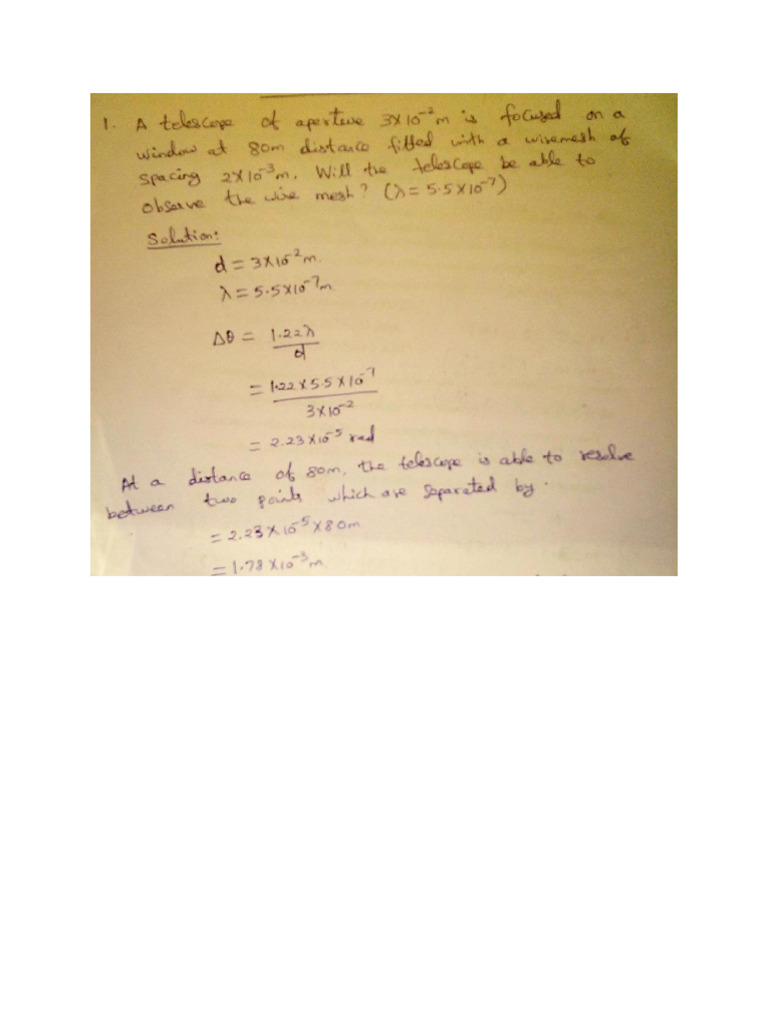 1. A telescope of aperture 3×10⁻²m is focused on a
window at 80m distance fitted with a wiremesh of
spacing 2×10⁻³m. Will the telescope be able to
observe the wire mesh? (λ = 5.5×10⁻⁷)
Solution:
d = 3×10⁻²m.
λ = 5.5×10⁻⁷m
Δθ = 1.22λ
d
= 1.22×5.5×10⁻⁷
3×10⁻²
= 2.23×10⁻⁵ rad
At a distance of 80m, the telescope is able to resolve
between two points which are separated by.
= 2.23×10⁻⁵×80m
= 1.78×10⁻³m